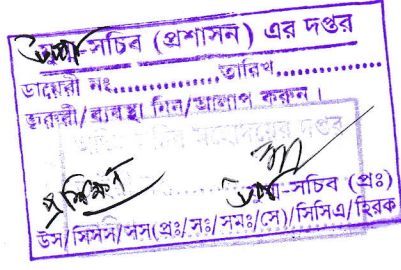 উপ সচিব (প্রশাসন) এর দপ্তর
ডায়েরী নং............তারিখ............
জরুরী/ব্যবস্থা নিন/আলাপ করুন।
প্রশিক্ষণ
উপ-সচিব (প্রঃ)
উস/সিসস/সস(প্রঃ/সঃ/সমঃ/সে)/সিসিএ/হিরক